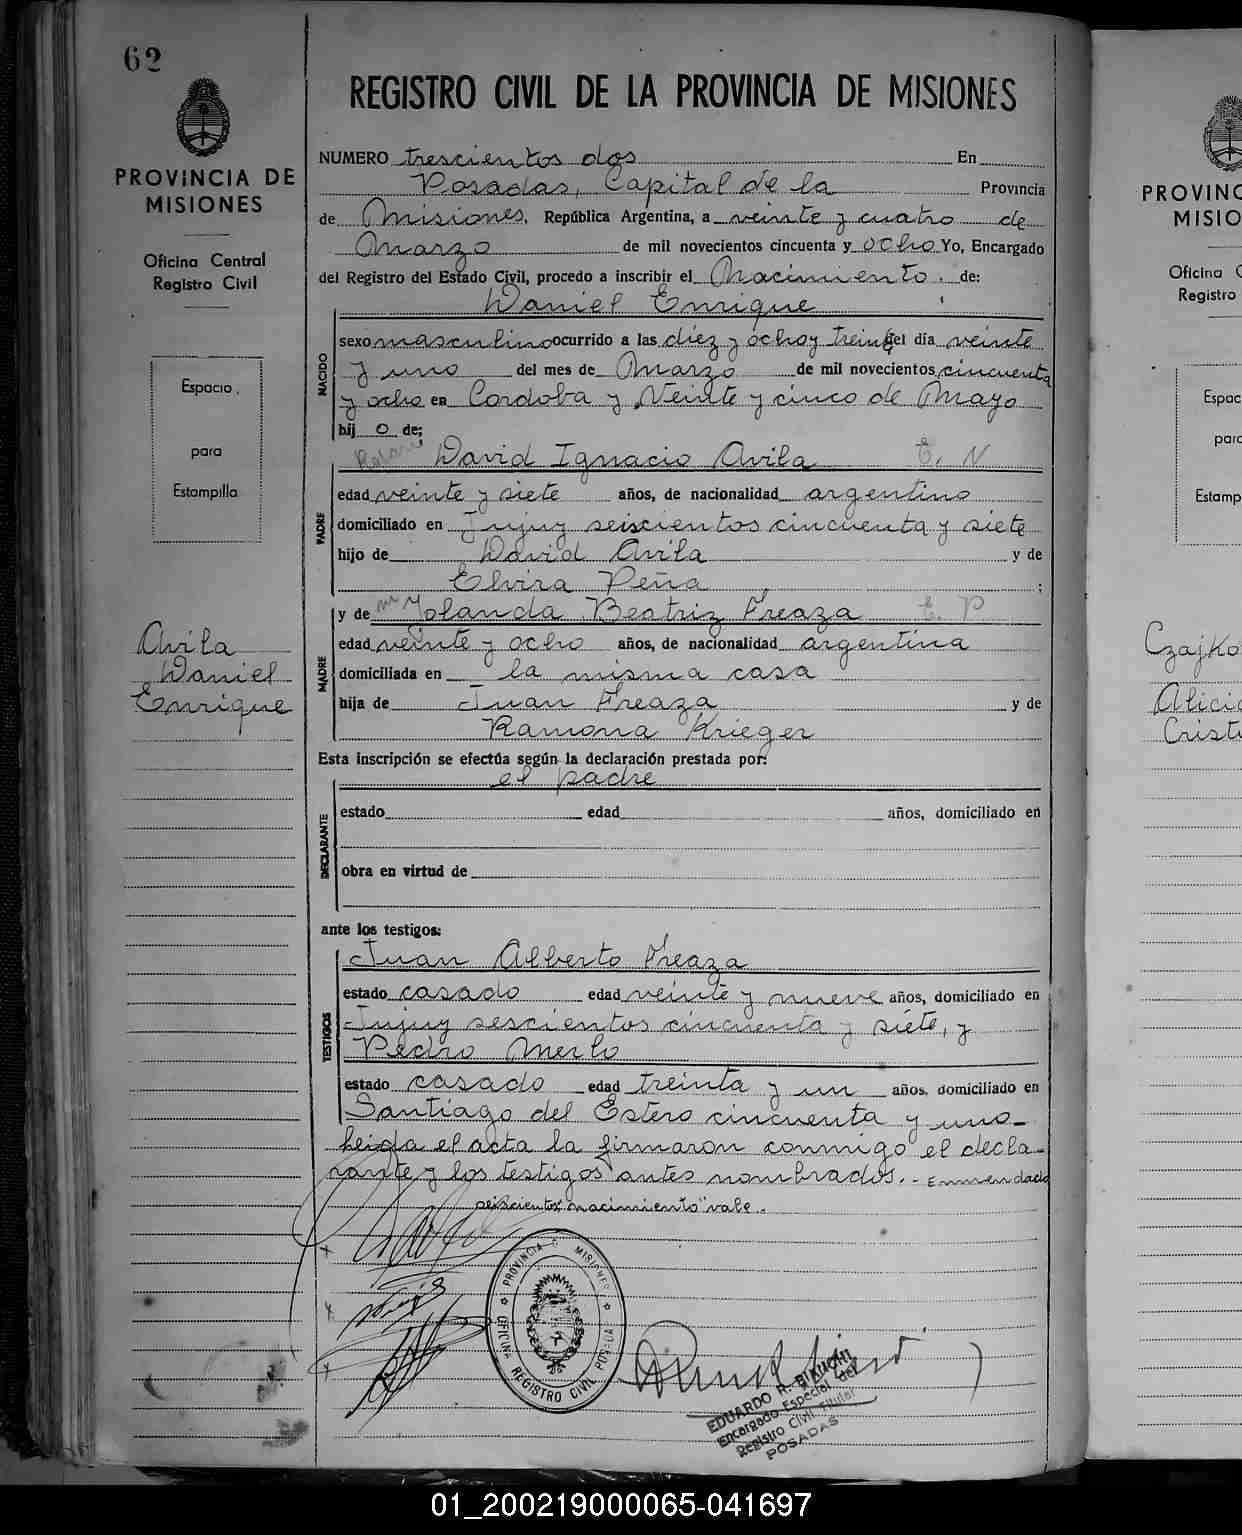 62
REGISTRO CIVIL DE LA PROVINCIA DE MISIONES
PROVINCIA DE
MISIONES
Oficina Central
Registro Civil
Espacio
para
Estampilla
Avila
Daniel
Enrique
NUMERO trescientos dos En
Posadas, Capital de la Provincia
de Misiones, República Argentina, a veinte y cuatro de
Marzo de mil novecientos cincuenta y ocho Yo, Encargado
del Registro del Estado Civil, procedo a inscribir el Nacimiento. de:
Daniel Enrique
NACIDO
sexo masculino ocurrido a las diez y ocho y treinta del día veinte
y uno del mes de Marzo de mil novecientos cincuenta
y ocho en Cordoba y Veinte y cinco de Mayo
hij o de:
David Ignacio Avila E. N
PADRE
edad veinte y siete años, de nacionalidad argentino
domiciliado en Jujuy seiscientos cincuenta y siete
hijo de David Avila y de
Elvira Peña ;
y de Yolanda Beatriz Freaza E. P
MADRE
edad veinte y ocho años, de nacionalidad argentina
domiciliada en la misma casa
hija de Juan Freaza y de
Ramona Krieger
Esta inscripción se efectúa según la declaración prestada por:
el padre
DECLARANTE
estado edad años, domiciliado en
obra en virtud de
ante los testigos:
Juan Alberto Freaza
TESTIGOS
estado casado edad veinte y nueve años, domiciliado en
Jujuy sescientos cincuenta y siete, y
Pedro Merlo
estado casado edad treinta y un años, domiciliado en
Santiago del Estero cincuenta y uno-
leida el acta la firmaron conmigo el decla-
rante y los testigos antes nombrados.- Enmendado
seiscientos "nacimiento" vale.
PROVINCIA D MISIONES
OFICINA REGISTRO CIVIL POSADA
EDUARDO R.
Encargado Especial del
Registro Civil Titular
POSADAS
PROVINC
MISIO
Oficina C
Registro
Espac
para
Estamp
Czajko
Alicia
Crist
01_200219000065-041697